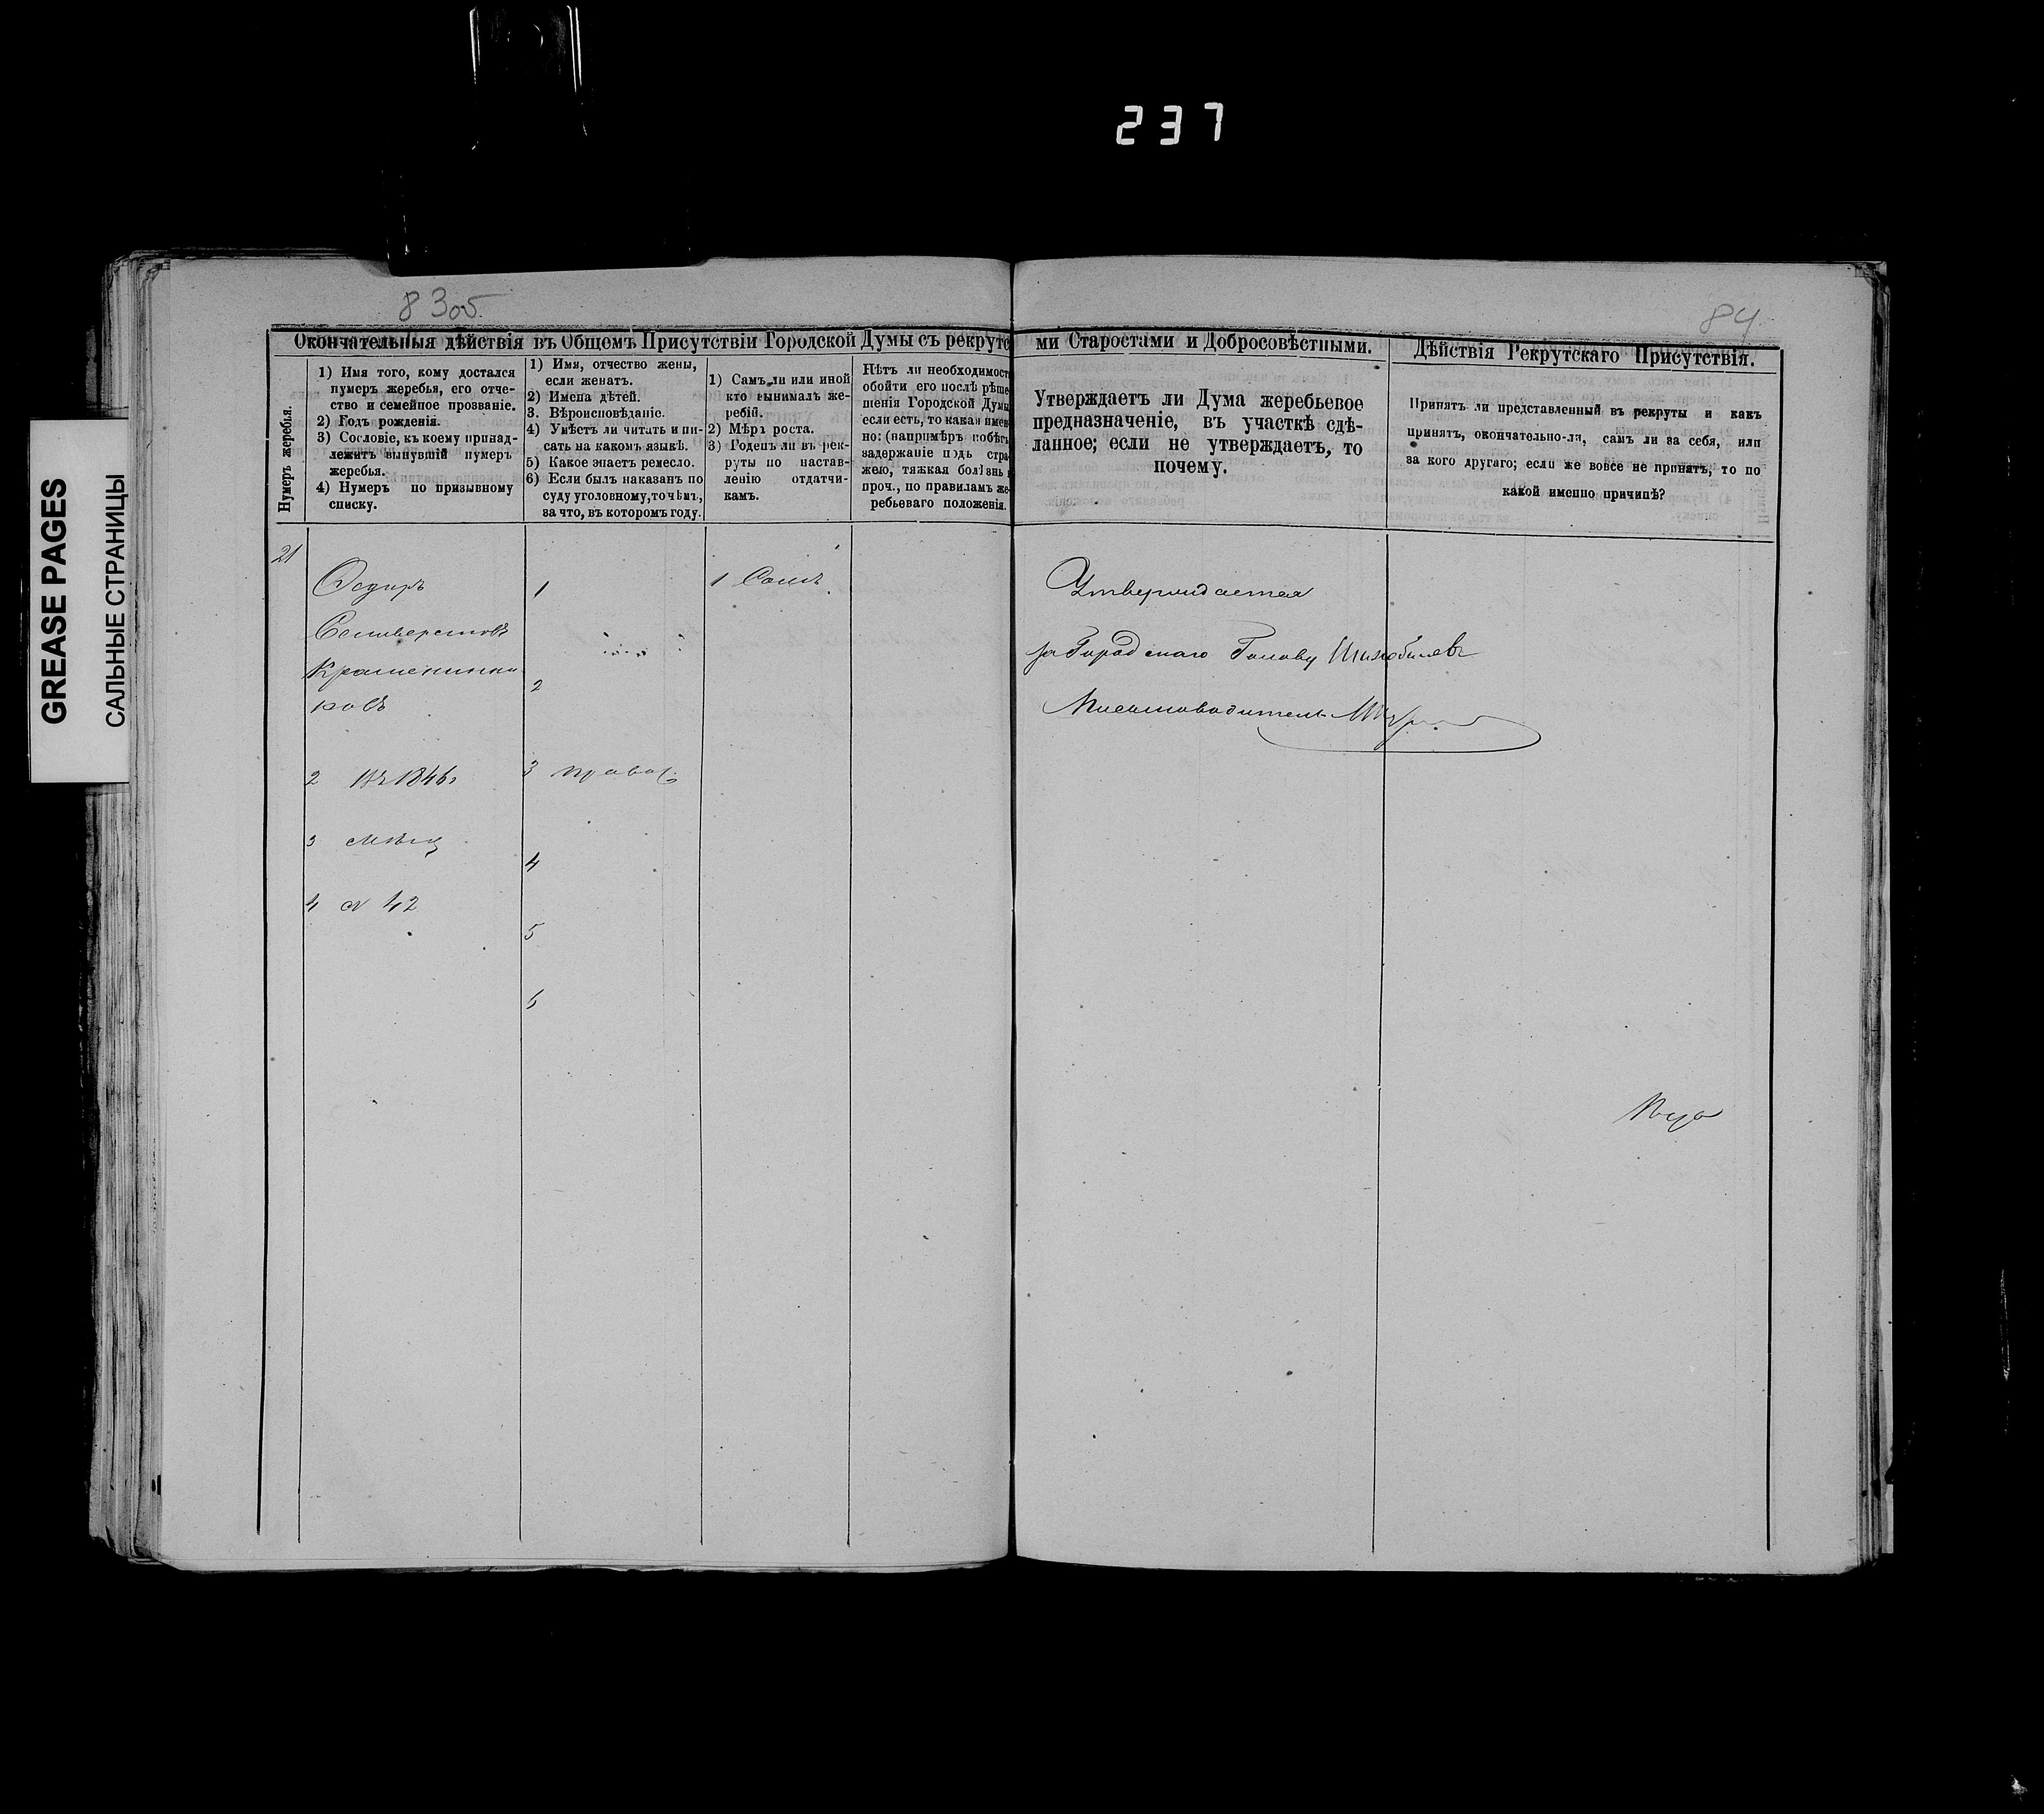 237
GREASE PAGES
САЛЬНЫЕ СТРАНИЦЫ
83об.
84
Окончательныя дѣйствія въ Общемъ Присутствіи Городской Думы съ рекрутс
ми Старостами и Добросовѣстными.
Дѣйствія Рекрутскаго Присутствія.
Нумеръ жеребья.
1) Имя того, кому достался
нумеръ жеребья, его отче-
ство и семейное прозваніе.
2) Годъ рожденія.
3) Сословіе, къ коему принад-
лежитъ вынувшій нумеръ
жеребья.
4) Нумеръ по призывному
списку.
1) Имя, отчество жены,
если женатъ.
2) Имена дѣтей.
3. Вѣроисповѣданіе.
4) Умѣетъ ли читать и пи-
сать на какомъ языкѣ.
5) Какое знаетъ ремесло.
6) Если былъ наказанъ по
суду уголовному, то чѣмъ,
за что, въ которомъ году.
1) Самъ ли или иной
кто вынималъ же-
ребій.
2) Мѣръ роста.
3) Годенъ ли въ рек-
руты по настав-
ленію отдатчи-
камъ.
Нѣтъ ли необходимост
обойти его послѣ рѣше
шенія Городской Думы
если есть, то какая имен
но: (напримѣръ побѣгъ
задержаніе подъ стра
жею, тяжкая болѣзнь и
проч., по правиламъ же
ребьеваго положенія.
Утверждаетъ ли Дума жеребьевое
предназначеніе, въ участкѣ сдѣ-
ланное; если не утверждаетъ, то
почему.
Принятъ ли представленный въ рекруты и какъ
принятъ, окончательно-ли, самъ ли за себя, или
за кого другаго; если же вовсе не принятъ, то по
какой именно причинѣ?
21
Ѳедоръ
Селиверстовъ
Крашенинни
ковъ
2 Въ 1846г
3 мѣщ
4 № 42
1
2
3 правос.
4
5
6
1 Самъ
Утверждается
за Городскаго Голову
Писмоводитель